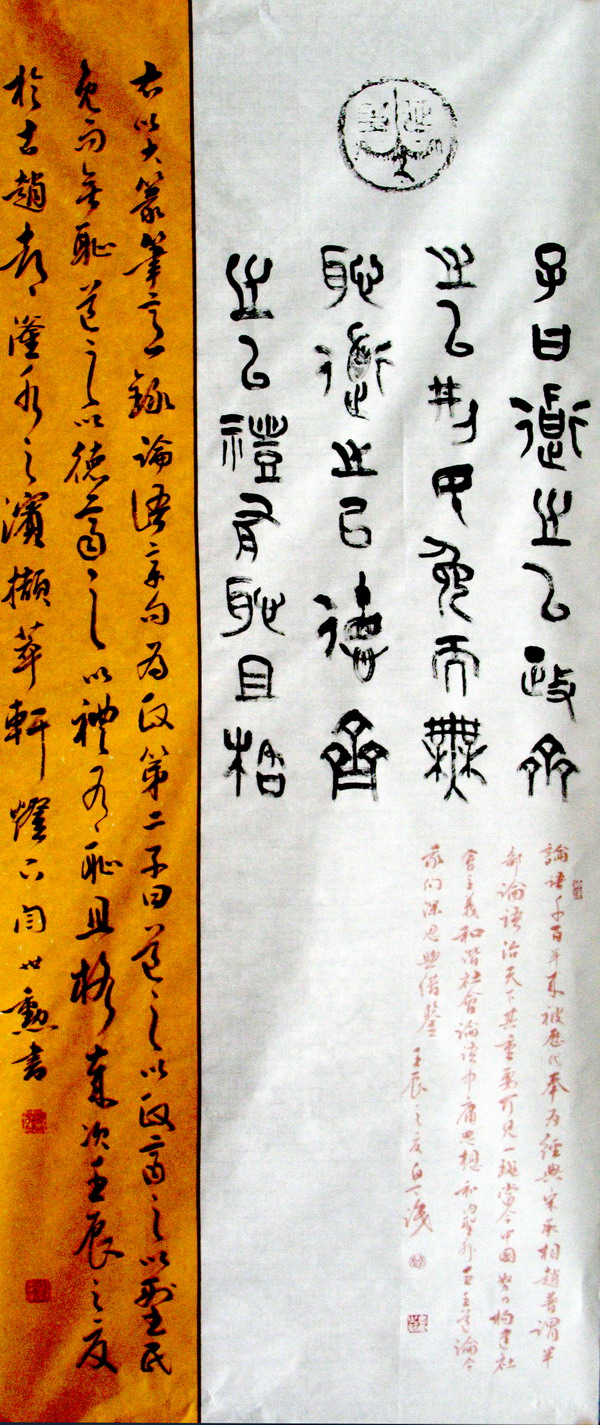 子曰道之以政齊
之以刑民免而無
恥道之以德齊
之以禮有恥且格
論語千百年來被歷代奉為經典宋丞相趙普謂半
部論語治天下其重要可見一斑當今中國努力构建社
會主義和谐社會論語中庸思想和内聖外王之道論令
我们深思与借鑒 壬辰之夏白丁識
右以大篆筆意錄論語章句為政第二子曰道之以政齊之以刑民
免而無恥道之以德齊之以禮有恥且格 歲次壬辰之夏
於古趙都滏水之濱擷萃軒燈下闫世勳書